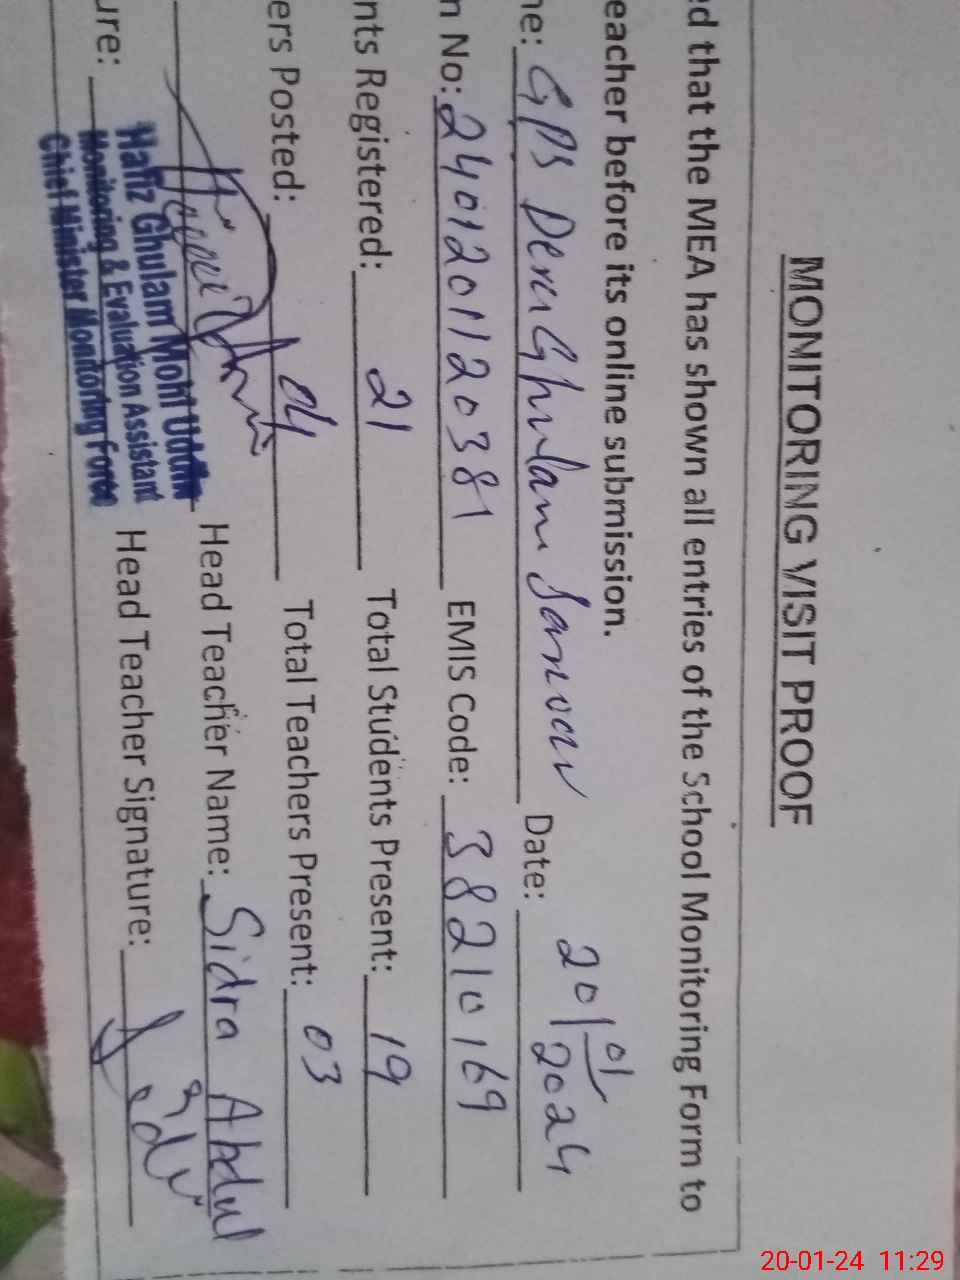 MONITORING VISIT PROOF
ed that the MEA has shown all entries of the School Monitoring Form to
eacher before its online submission.
ne: GPS Dera Ghulam Sarwar Date: 20/01/2024
n No: 24012011 20381 EMIS Code: 38210169
nts Registered: 21 Total Students Present: 19
ers Posted: 04 Total Teachers Present: 03
Head Teacher Name: Sidra Abdul
ure: Head Teacher Signature:
Hafiz Ghulam Mohi Uddin
Monitoring & Evaluation Assistant
Chief Minister Monitoring Force
20-01-24 11:29